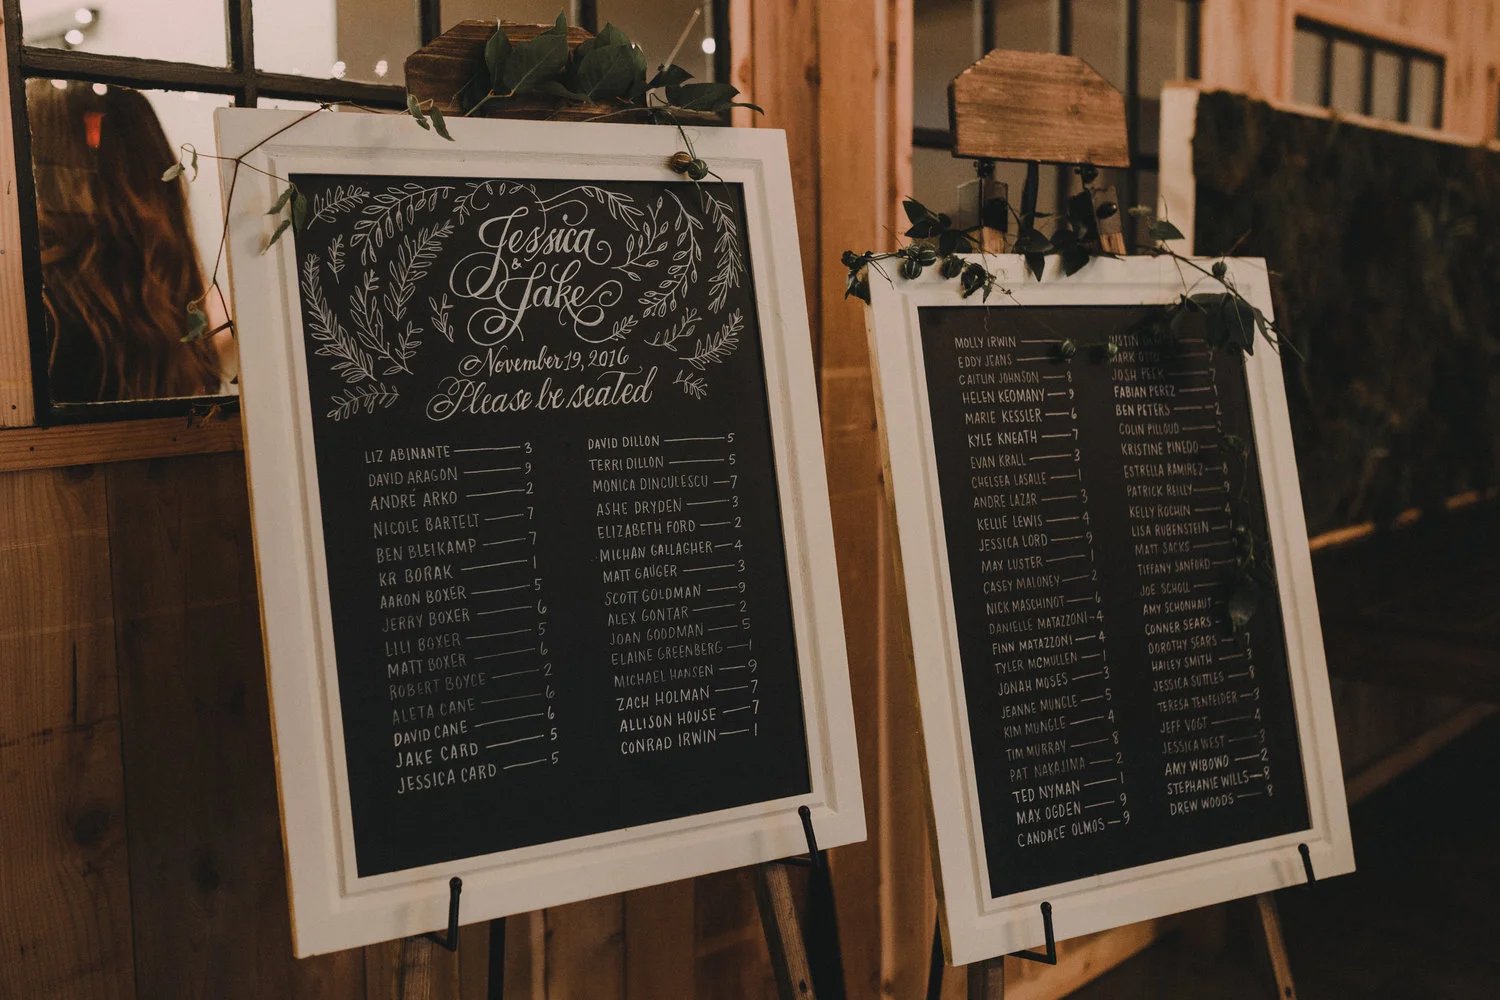 Jessica
&
Jake
November 19, 2016
Please be seated
LIZ ABINANTE — 3
DAVID ARAGON — 9
ANDRÉ ARKO — 2
NICOLE BARTELT — 7
BEN BLEIKAMP — 7
KR BORAK — 1
AARON BOXER — 5
JERRY BOXER — 6
LILI BOXER — 5
MATT BOXER — 6
ROBERT BOYCE — 2
ALETA CANE — 6
DAVID CANE — 6
JAKE CARD — 5
JESSICA CARD — 5
DAVID DILLON — 5
TERRI DILLON — 5
MONICA DINCULESCU — 7
ASHE DRYDEN — 3
ELIZABETH FORD — 2
MICHAN GALLAGHER — 4
MATT GAUGER — 3
SCOTT GOLDMAN — 9
ALEX GONTAR — 2
JOAN GOODMAN — 5
ELAINE GREENBERG — 1
MICHAEL HANSEN — 9
ZACH HOLMAN — 7
ALLISON HOUSE — 7
CONRAD IRWIN — 1
MOLLY IRWIN —
EDDY JEANS —
CAITLIN JOHNSON — 8
HELEN KEOMANY — 9
MARIE KESSLER — 6
KYLE KNEATH — 7
EVAN KRALL — 3
CHELSEA LASALLE — 1
ANDRE LAZAR — 3
KELLIE LEWIS — 4
JESSICA LORD — 9
MAX LUSTER — 1
CASEY MALONEY — 2
NICK MASCHINOT — 6
DANIELLE MATAZZONI — 4
FINN MATAZZONI — 4
TYLER MCMULLEN — 1
JONAH MOSES — 3
JEANNE MUNGLE — 5
KIM MUNGLE — 4
TIM MURRAY — 8
PAT NAKAJIMA — 2
TED NYMAN — 1
MAX OGDEN — 9
CANDACE OLMOS — 9
MARK OTTO
JOSH PEEK — 7
FABIAN PEREZ — 1
BEN PETERS — 2
COLIN PILLOUD
KRISTINE PINEDO
ESTRELLA RAMIREZ — 8
PATRICK REILLY — 9
KELLY ROCHIN — 4
LISA RUBENSTEIN — 1
MATT SACKS
TIFFANY SANFORD
JOE SCHOLL
AMY SCHONHAUT
CONNER SEARS
DOROTHY SEARS — 7
HAILEY SMITH — 3
JESSICA SUTTLES — 8
TERESA TENFELDER — 3
JEFF VOGT — 4
JESSICA WEST — 3
AMY WIBOWO — 2
STEPHANIE WILLS — 8
DREW WOODS — 8